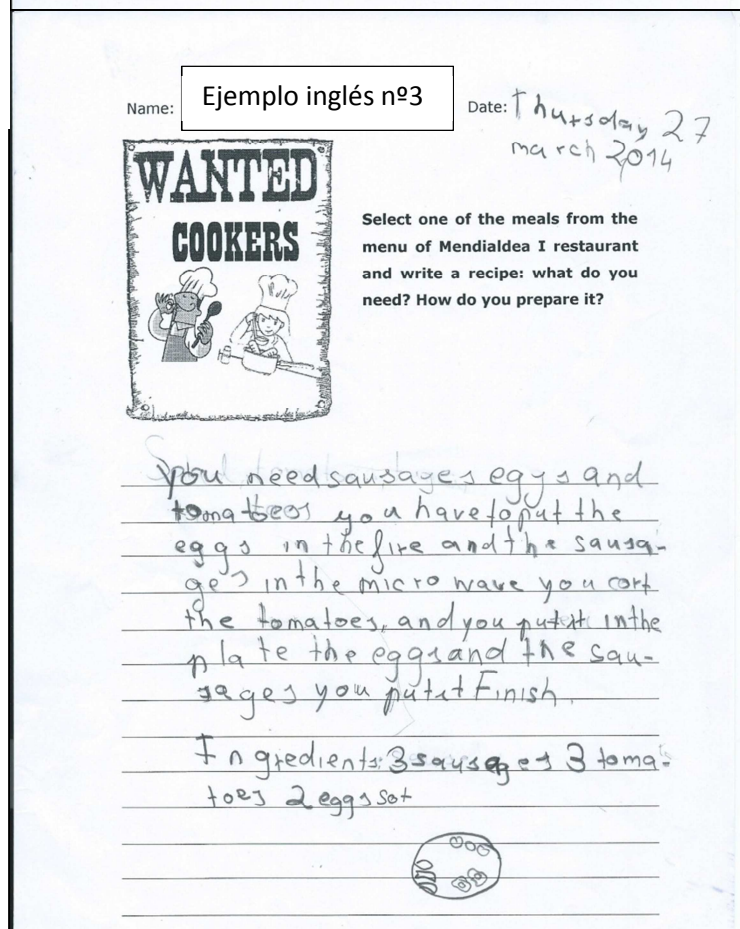 Name: Ejemplo inglés nº3 Date: Thursday 27
march 2014
WANTED
COOKERS
Select one of the meals from the
menu of Mendialdea I restaurant
and write a recipe: what do you
need? How do you prepare it?
you need sausages eggs and
tomatoes you have to put the
eggs in the fire and the sausa-
ges in the micro wave you cort
the tomatoes, and you put it in the
plate the eggs and the sau-
sages you put it Finish.
Ingredients: 3 sausages 3 toma-
toes 2 eggs sot